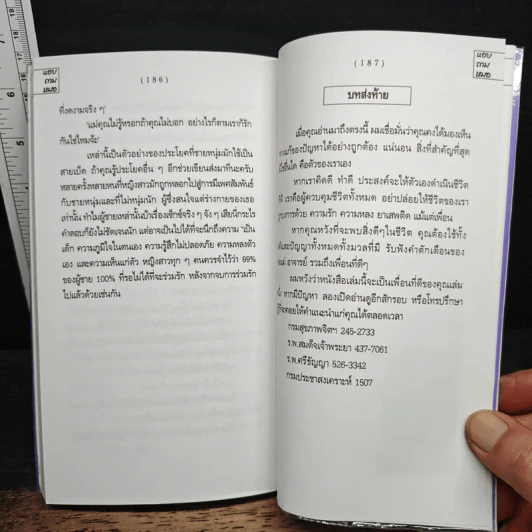 แอบ
ถาม
หมอ
(186)
ที่งดงามจริง ๆ"
"แม่คุณไม่รู้หรอกถ้าคุณไม่บอก อย่างไรก็ตามเราก็รัก
กันใช่ไหมจ๊ะ"
เหล่านี้เป็นตัวอย่างของประโยคที่ชายหนุ่มมักใช้เป็น
สายเบ็ด ถ้าคุณรู้ประโยคอื่น ๆ อีกช่วยเขียนส่งมาที่นะครับ
หลายครั้งหลายหนที่หญิงสาวมักถูกหลอกไปสู่การมีเพศสัมพันธ์
กับชายหนุ่มและที่ไม่หนุ่มนัก ผู้ซึ่งสนใจแต่ร่างกายของเธอ
เท่านั้น ทำไมผู้ชายเหล่านั้นบ้าเรื่องเซ็กซ์จริง ๆ จัง ๆ เสียนี่กระไร
คำตอบก็ยังไม่ชัดเจนนัก แต่อาจเป็นไปได้ที่จะนึกถึงความ "เป็น
เด็ก ความภูมิใจในตนเอง ความรู้สึกไม่ปลอดภัย ความหลงตัว
เอง และความเห็นแก่ตัว หญิงสาวทุก ๆ คนควรจำไว้ว่า 99%
ของผู้ชาย 100% ที่รอไม่ได้ที่จะร่วมรัก หลังจากจบการร่วมรัก
ไปแล้วด้วยเช่นกัน
(187)
แอบ
ถาม
หมอ
บทส่งท้าย
เมื่อคุณอ่านมาถึงตรงนี้ ผมเชื่อมั่นว่าคุณคงได้มองเห็น
แก้ของปัญหาได้อย่างถูกต้อง แน่นอน สิ่งที่สำคัญที่สุด
คือตัวของเราเอง
หากเราคิดดี ทำดี ประสงค์จะให้ตัวเองดำเนินชีวิต
ดี เราคือผู้ควบคุมชีวิตทั้งหมด อย่าปล่อยให้ชีวิตของเรา
การด้วย ความรัก ความหลง ยาเสพติด แม้แต่เพื่อน
หากคุณหวังที่จะพบสิ่งดีๆในชีวิต คุณต้องใช้ทั้ง
และปัญญาทั้งหมดทั้งมวลที่มี รับฟังคำตักเตือนของ
แม่ อาจารย์ รวมถึงเพื่อนที่ดีๆ
ผมหวังว่าหนังสือเล่มนี้จะเป็นเพื่อนที่ดีของคุณเล่ม
หากมีปัญหา ลองเปิดอ่านดูอีกสักรอบ หรือโทรปรึกษา
คอยให้คำแนะนำแก่คุณได้ตลอดเวลา
กรมสุขภาพจิตฯ 245-2733
ร.พ.สมเด็จเจ้าพระยา 437-7061
ร.พ.ศรีธัญญา 526-3342
กรมประชาสงเคราะห์ 1507